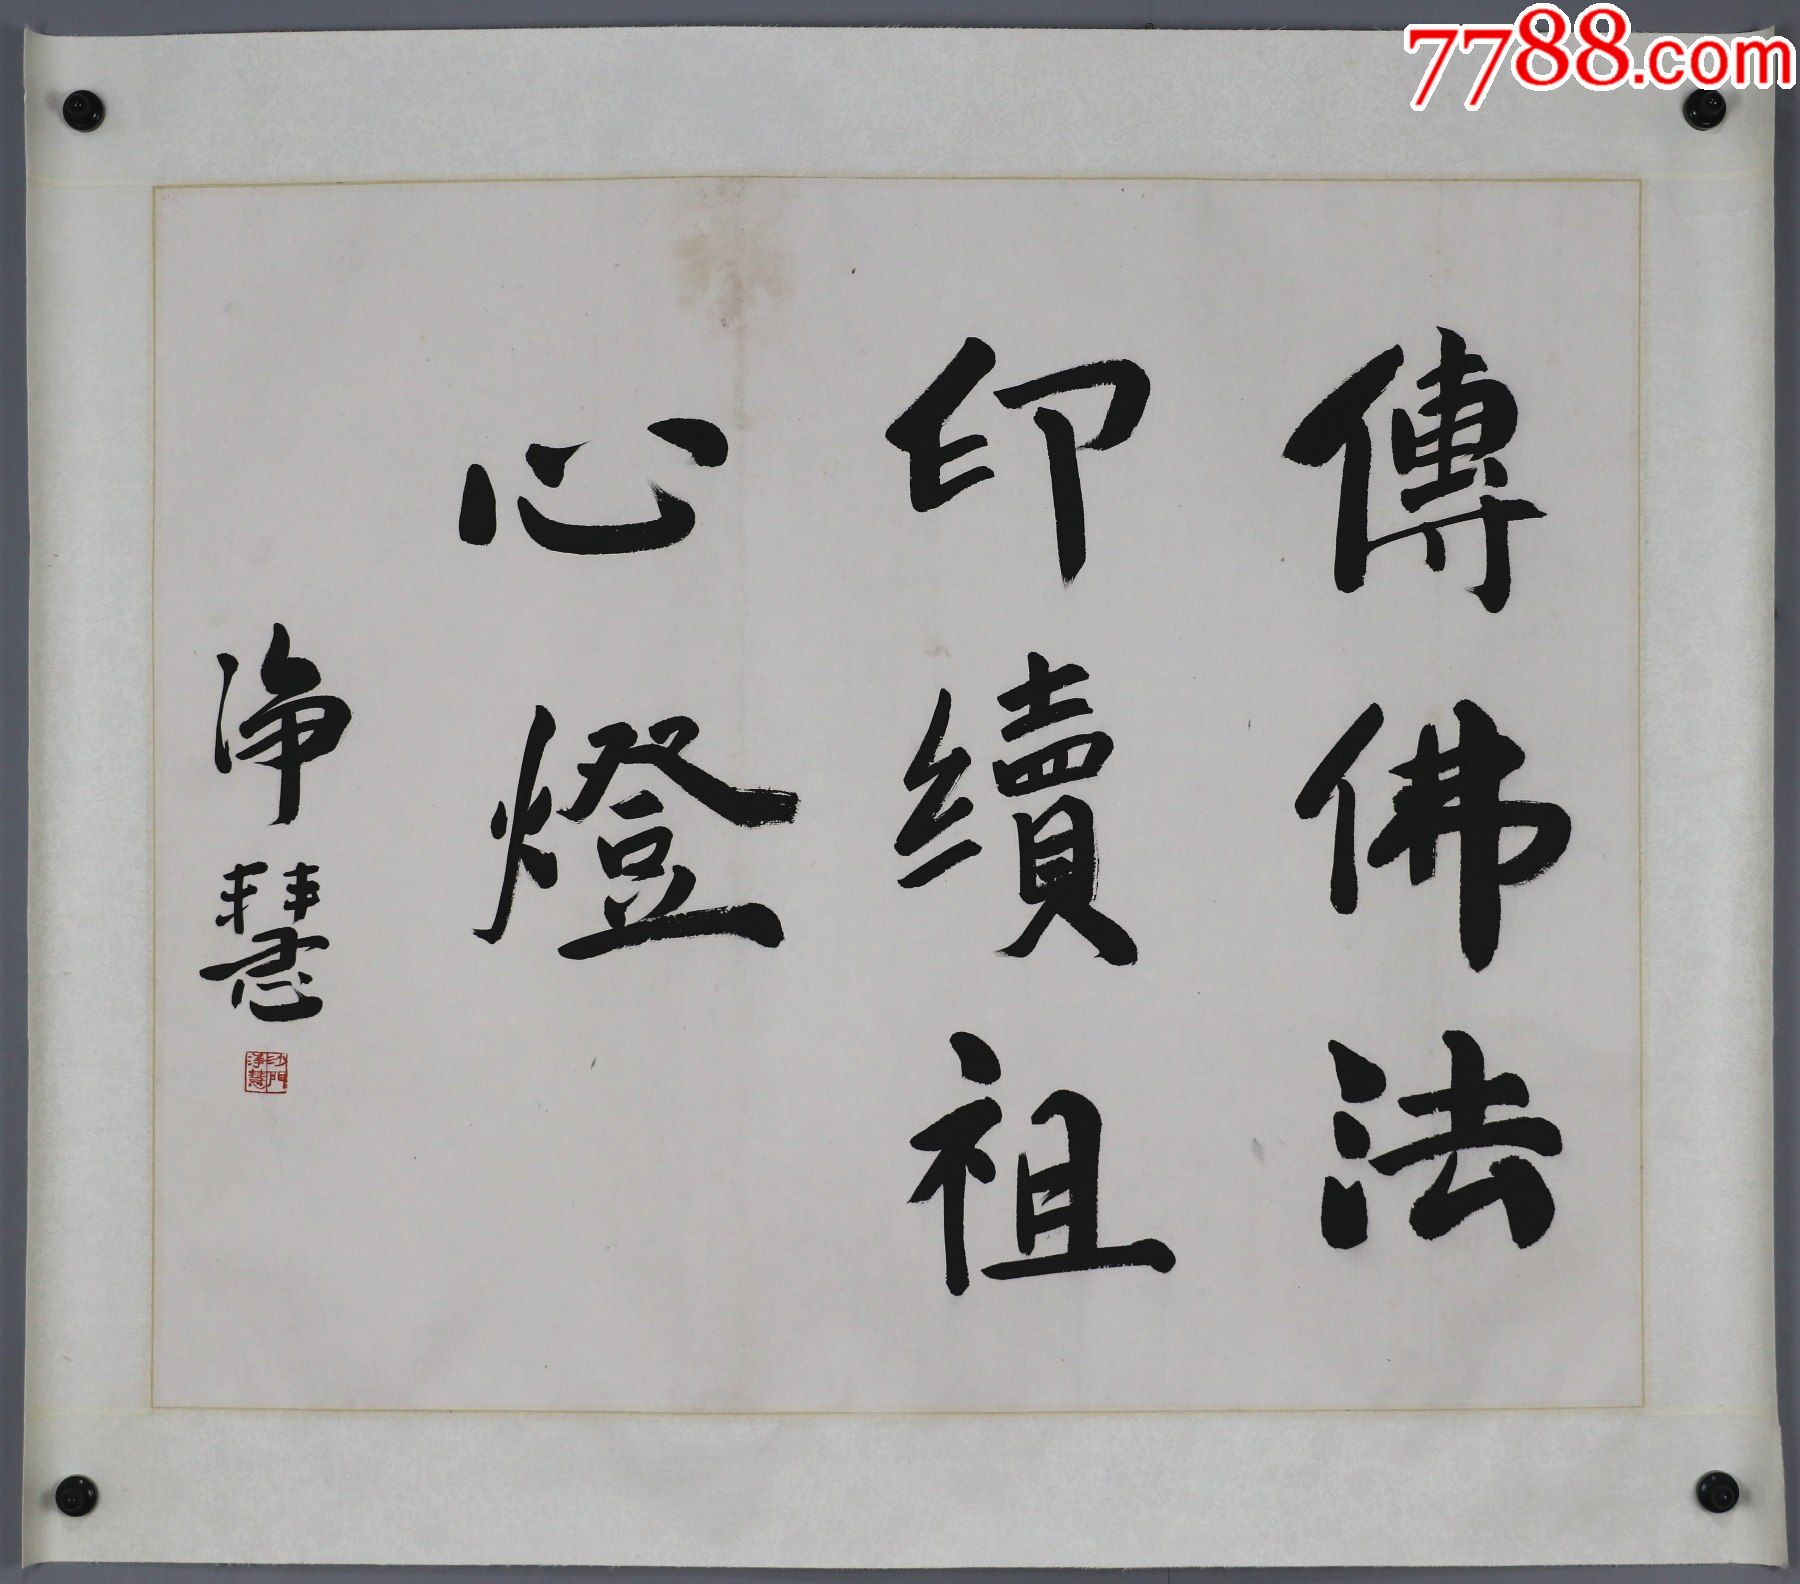 7788.com
傳佛法
印續祖
心燈
淨慧
沙門
淨慧